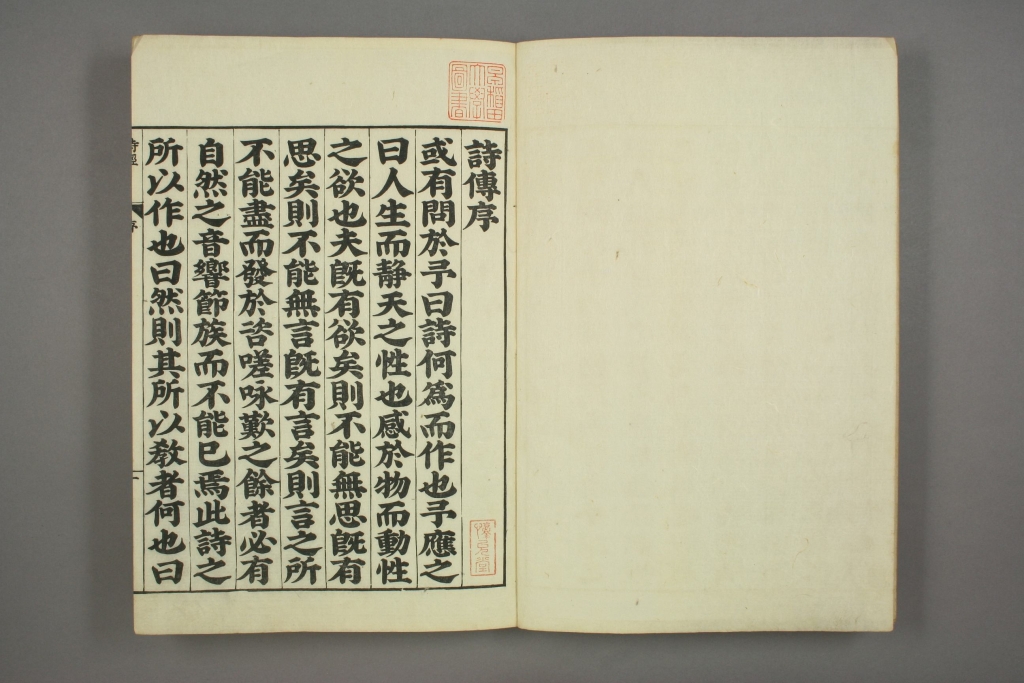 詩傳序
或有問於予曰詩何爲而作也予應之
曰人生而靜天之性也感於物而動性
之欲也夫旣有欲矣則不能無思旣有
思矣則不能無言旣有言矣則言之所
不能盡而發於咨嗟咏歎之餘者必有
自然之音響節族而不能已焉此詩之
所以作也曰然則其所以敎者何也曰
詩經
序